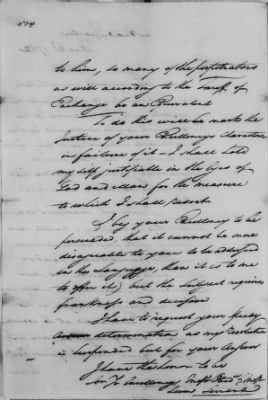 574
to him, so many of the perpetrators
as will according to the Tariff of
Exchange be an Equivalent
To do this will be marks the
Justice of your Excellency's Character
in favour of it — I shall hold
myself justifiable in the Eyes of
God and Man for the measure
to which I shall resort
I beg your Excellency to be
persuaded, that it cannot be more
disagreable to you to be addressed
in this language, than it is to me
to offer it; but the subject requires
frankness and decision
I have to request your speedy
determination as my resolution
is suspended but for your answer
I have the honor to be
Sir Yr Excellency's most Obed
Servant